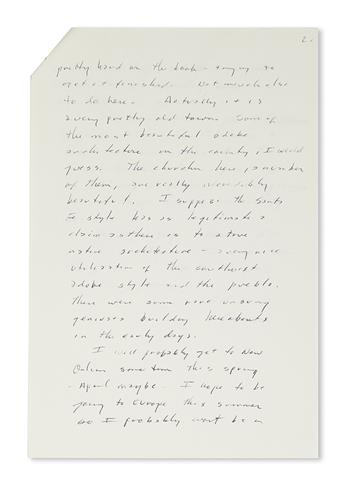 2.
pretty hard on the book - trying to
get it finished. Not much else
to do here. Actually it is
a very pretty old town. Some of
the most beautiful adobe
architecture in the country, I would
guess. The churches here, a number
of them, are really incredibly
beautiful. I suppose the Santa
Fe style has as legitimate a
claim as there is to a true
native architecture - a very nice
utilization of the southwest
adobe style and the pueblo.
There were some unsung
geniuses building hereabouts
in the early days.
I will probably get to New
Orleans sometime this spring
- April maybe. I hope to be
going to Europe this summer
so I probably won't be in